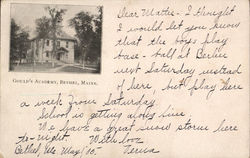 Dear Mattie - I thought
I would let you know
that the boys play
base-ball at Berlin
next Saturday instead
of here, but play here
GOULD'S ACADEMY, BETHEL, MAINE.
a week from Saturday.
School is getting along fine
We have a great snow storm here
to-night. With love
Bethel, Me May 15 - Verna